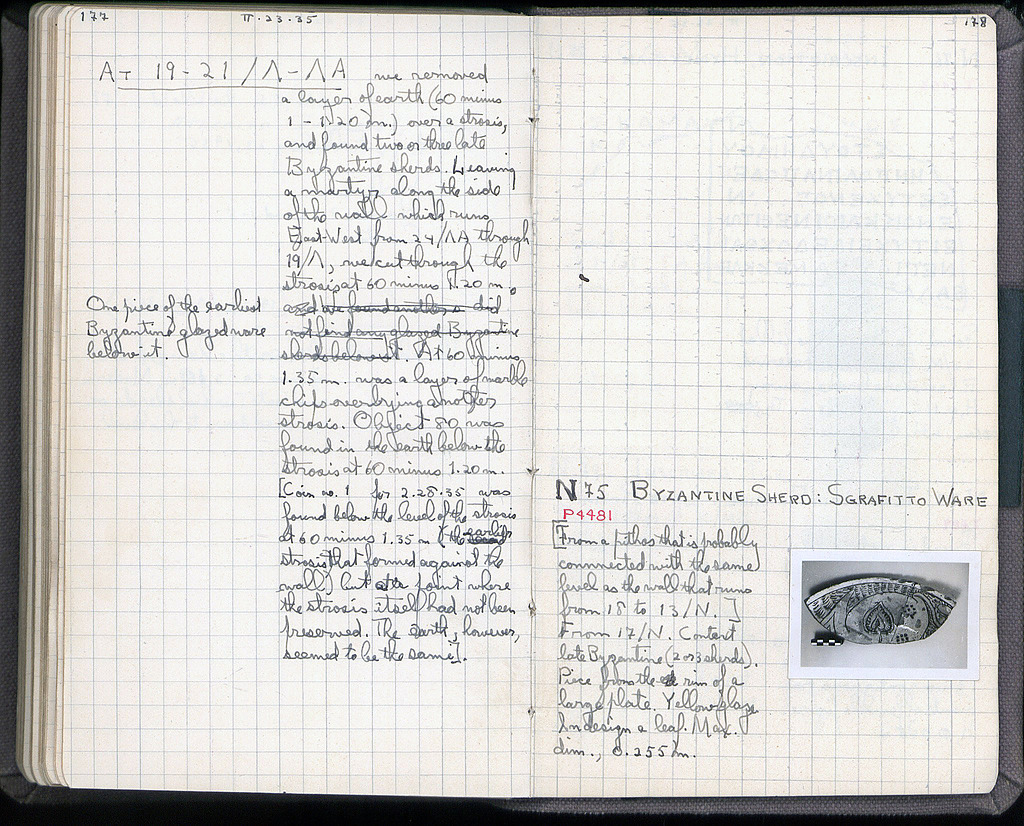 177
II.23.35
A- 19-21/Λ-ΛA we removed
a layer of earth (60 minus
1 - 1.20 m.) over a strosis,
and found two or three late
Byzantine sherds. Leaving
a martyr along the side
of the wall which runs
East-West from 24/ΛA through
19/Λ, we cut through the
strosis at 60 minus 1.20 m.
and we found another s did
not find any glazed Byzantine
sherds below it. At 60 minus
1.35 m. was a layer of marble
chips overlying another
strosis. Object 80 was
found in the earth below the
strosis at 60 minus 1.20 m.
[Coin no. 1 for 2.28.35 was
found below the level of the strosis
at 60 minus 1.35 m (the earlier
strosis that formed against the
wall) but at a point where
the strosis itself had not been
preserved. The earth, however,
seemed to be the same].
One piece of the earliest
Byzantine glazed ware
below it.
178
N75 BYZANTINE SHERD: SGRAFITTO WARE
P4481
[From a pithos that is probably
connected with the same
level as the wall that runs
from 18 to 13/N.]
From 17/N. Context
late Byzantine (2 or 3 sherds).
Piece from the rim of a
large plate. Yellow glaze
In design a leaf. Max.
dim., 0.255 m.